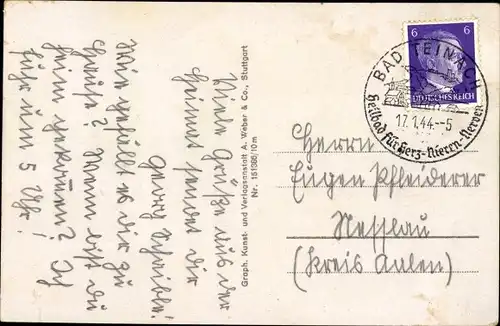 Viele Grüße aus der
Heimat sendet dir
Georg Schreible.
Wie gefällt es dir zu
Hause? Wann bist du
heim gekommen? Ich
fuhr um 5 Uhr!
Graph. Kunst- und Verlagsanstalt A. Weber & Co., Stuttgart
Nr. 151386/10 m
6 6
DEUTSCHES REICH
BAD TEINACH
17.1.44.-5
Heilbad für Herz-Nieren-Nerven
Herrn
Eugen Pfleiderer
Nesslau
(Kreis Aalen)